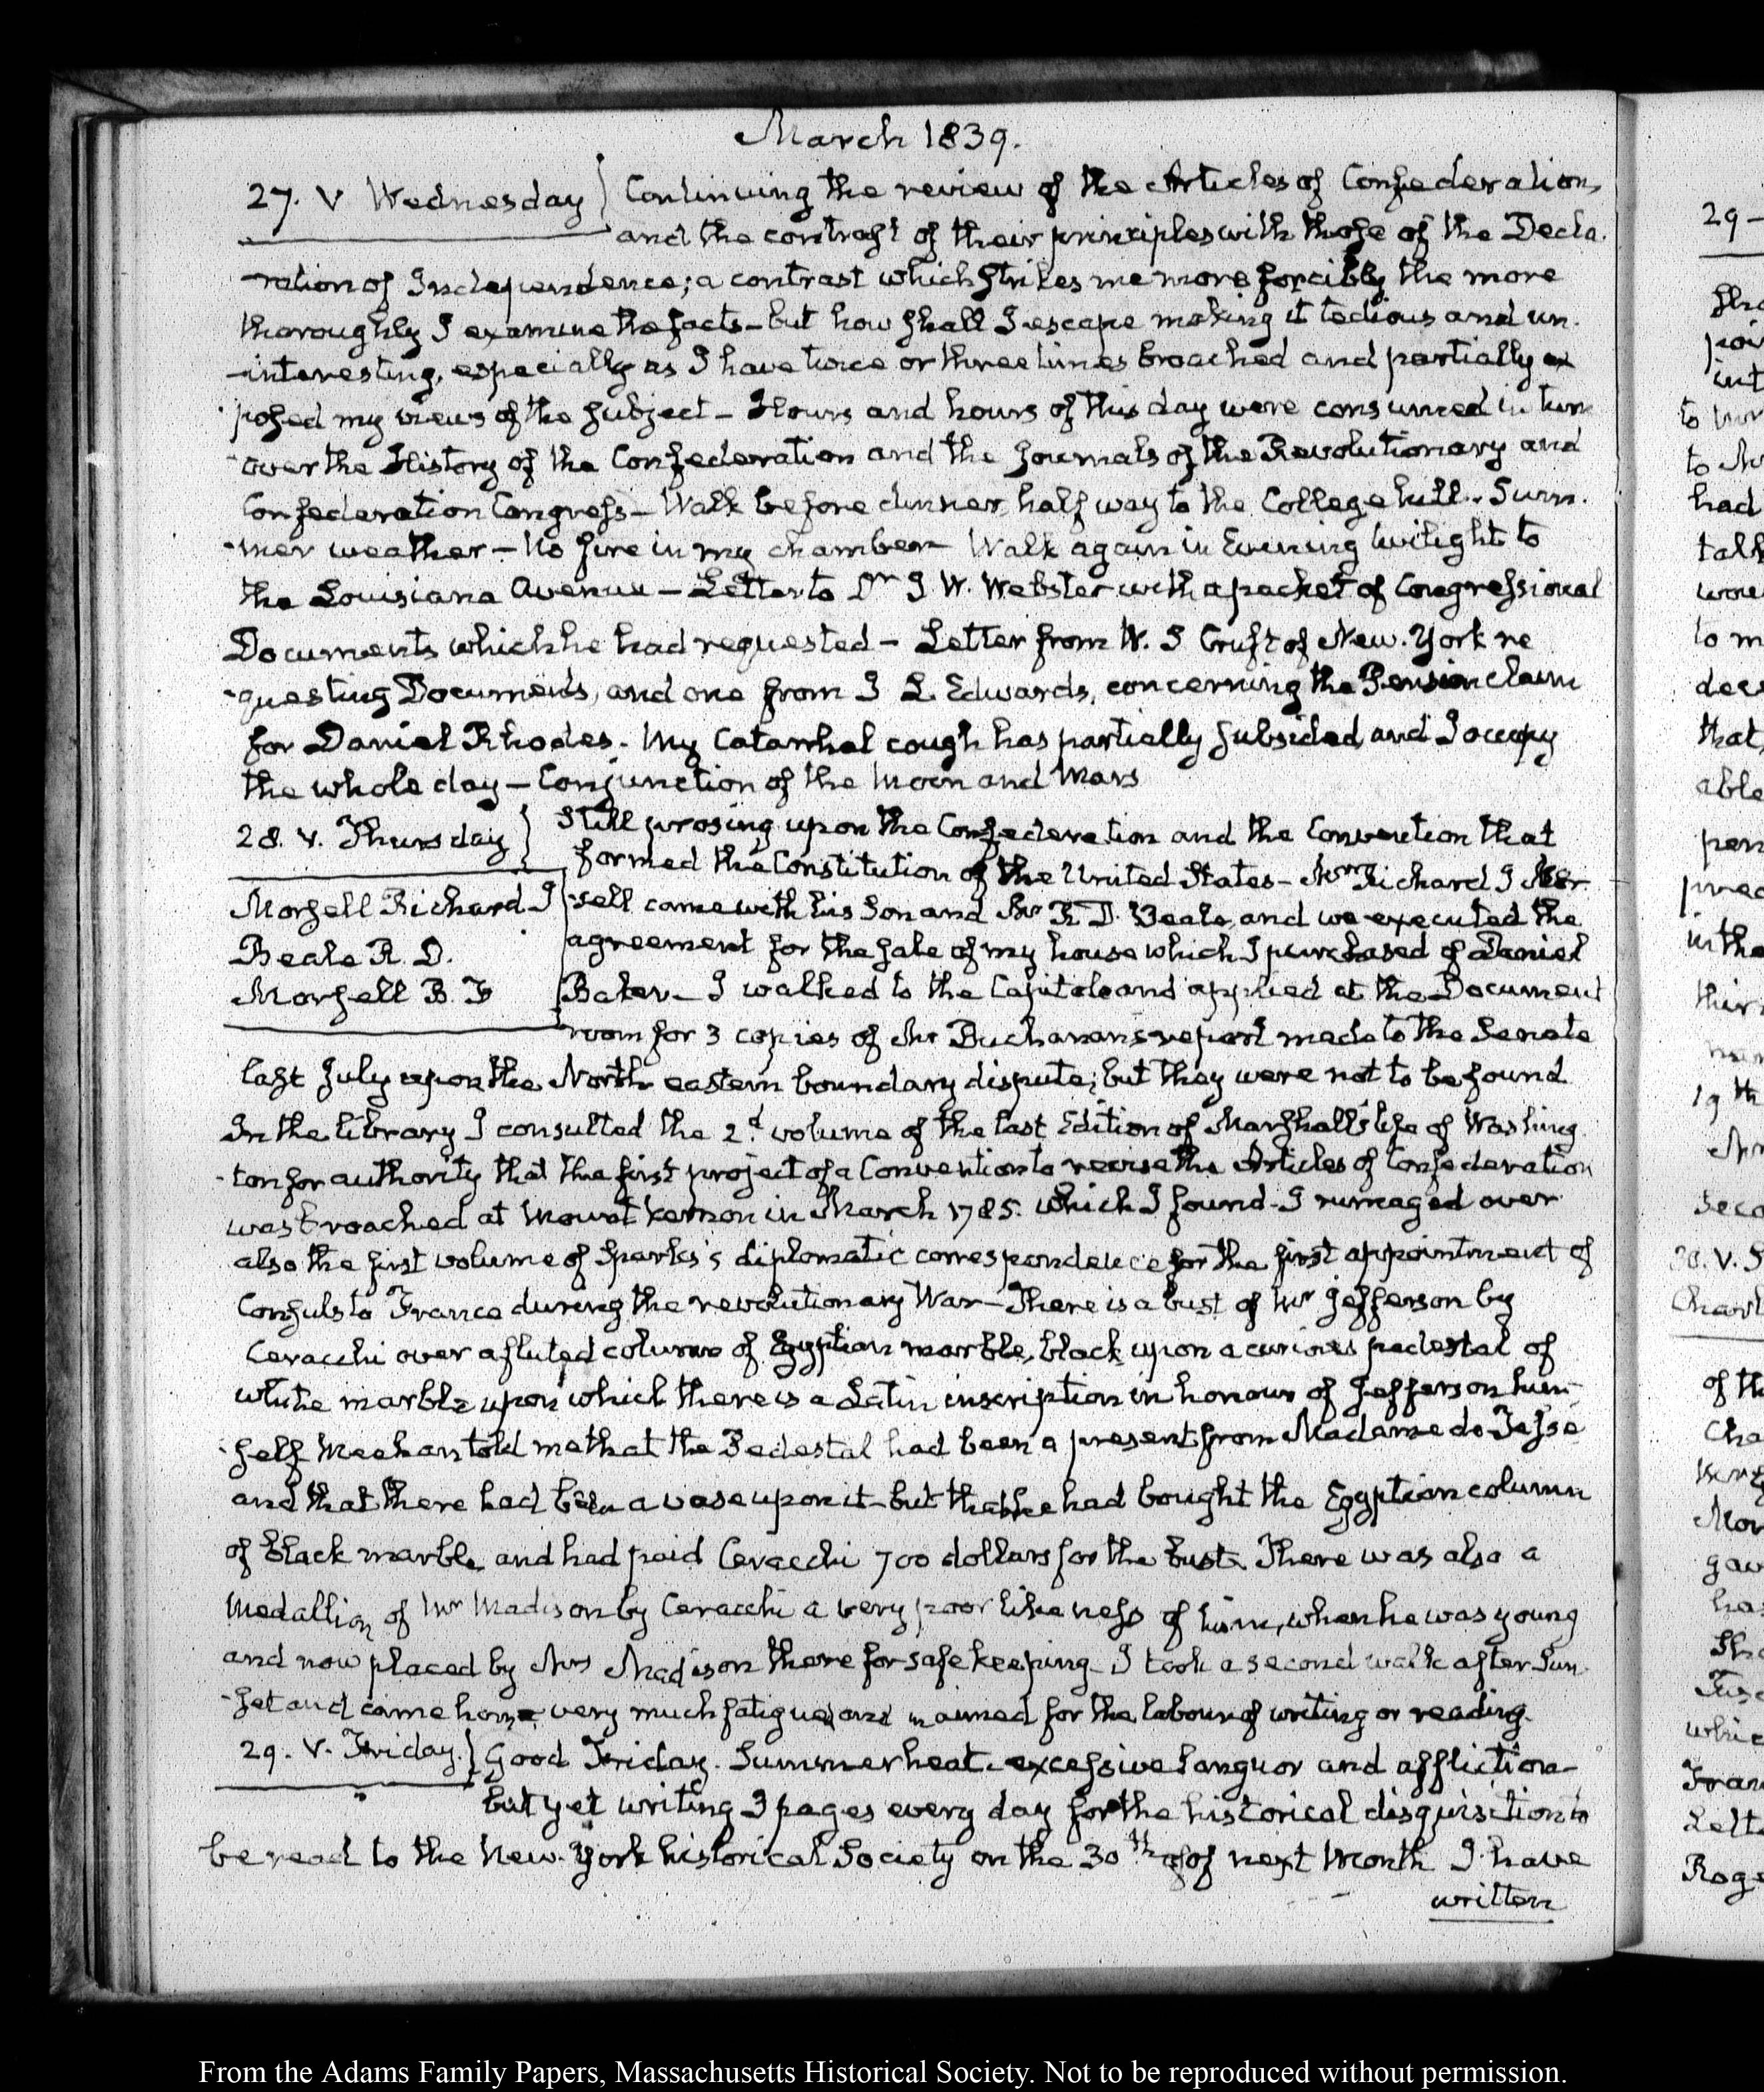 March 1839.
27. V Wednesday} Continuing the review of the Articles of Confederation,
and the contrast of their principles with those of the Decla-
-ration of Independence; a contrast which strikes me more forcibly the more
thoroughly I examine the facts – but how shall I escape making it tedious and un-
-interesting, especially as I have twice or three times broached and partially ex
posed my views of the subject – Hours and hours of this day were consumed in turn
over the History of the Confederation and the Journals of the Revolutionary and
Confederation Congress – Walk before dinner, half way to the College hill. Sum-
-mer weather – No fire in my chamber – Walk again in Evening twilight to
the Louisiana Avenue – Letter to Dr J W. Webster with a packet of Congressional
Documents which he had requested – Letter from W. S Cruft of New-York re
-questing Documents, and one from J L Edwards, concerning the Pension claim
for Daniel Rhodes. My Catarrhal cough has partially subsided, and I occupy
the whole day – Conjunction of the Moon and Mars
28. V. Thursday} Still prosing upon the Confederation and the Convention that
formed the Constitution of the United States – Mr Richard J Mor
Morsell Richard J
-sell came with his Son and Mr R D. Beale, and we executed the
Beale R. D.
agreement for the sale of my house which I purchased of Daniel
Morsell B. F
Baker – I walked to the Capitol and applied at the Document
room for 3 copies of Mr Buchanan's report made to the Senate
last July upon the North eastern boundary dispute; but they were not to be found
In the library I consulted the 2d. volume of the last Edition of Marshall's life of Washing
-ton for authority that the first project of a Convention to revise the Articles of Confederation
was broached at Mount Vernon in March 1785. which I found – I rumaged over
also the first volume of Sparks's diplomatic correspondence for the first appointment of
Consuls to France during the revolutionary War – There is a bust of Mr Jefferson by
Ceracchi over a fluted column of Egyptian marble, black upon a curious pedestal of
white marble upon which there is a Latin inscription in honour of Jefferson him-
-self Meehan told me that the Pedestal had been a present from Madame de Tesse
and that there had been a vase upon it – but that he had bought the Egyptian column
of black marble, and had paid Ceracchi 700 dollars for the bust. There was also a
Medallion of Mr Madison by Ceracchi a very poor likeness of him, when he was young
and now placed by Mrs Madison there for safe keeping – I took a second walk after Sun-
-set and came home very much fatigued and for the labour of writing or reading.
29. V. Friday.} Good Friday. Summer heat. excessive languor and affliction –
but yet writing 3 pages every day for the historical disquisition to
be read to the New-York historical Society on the 30th of next Month I have
written
29 –
to
to
had
talk
to m
that
able
in the
19 th
of th
Cha
From the Adams Family Papers, Massachusetts Historical Society. Not to be reproduced without permission.